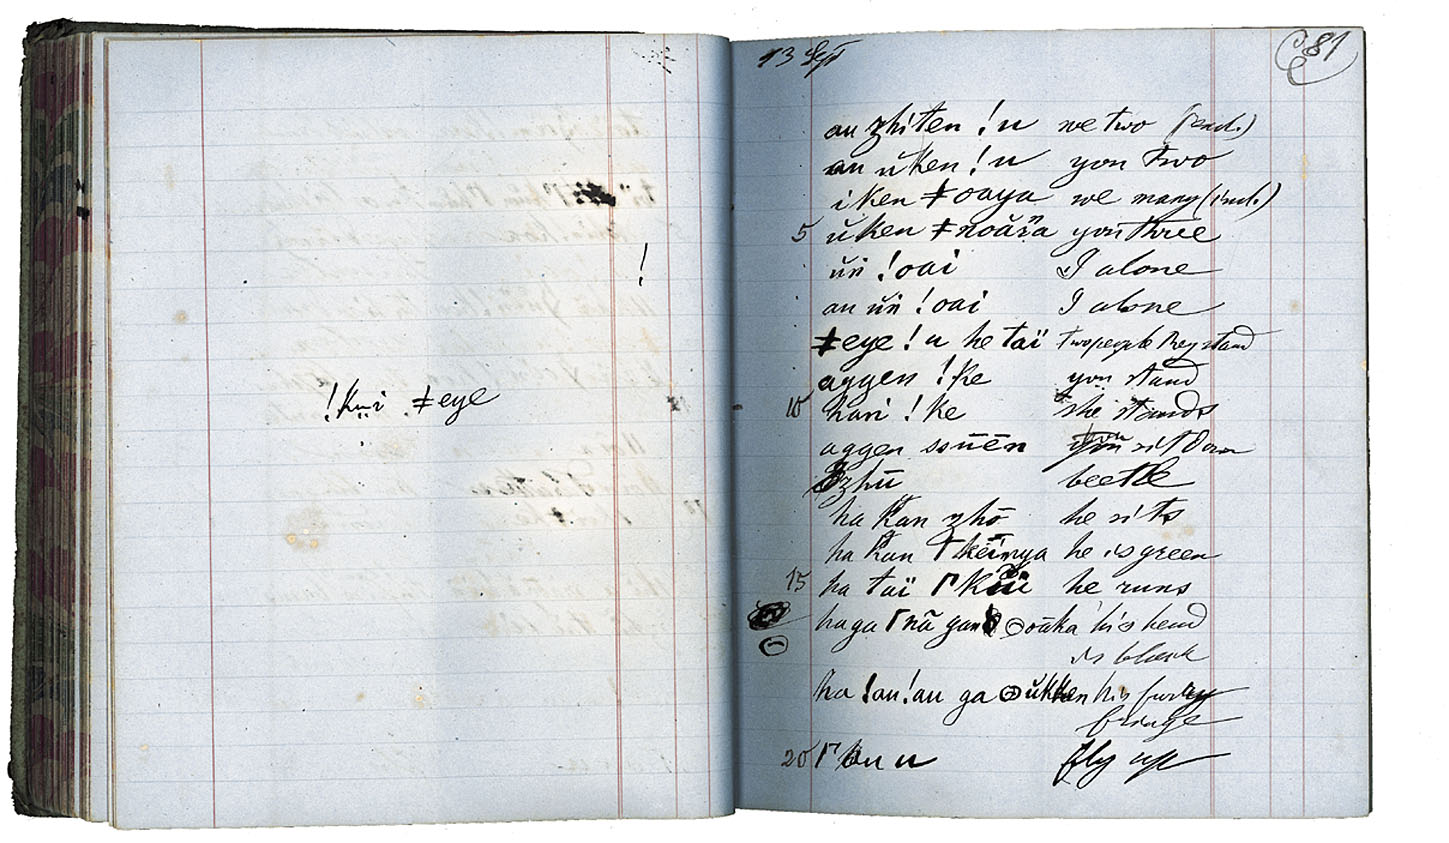 !
!kui ǂeye
13 Sept
81
au zhiten !u we two (incl.)
au ŭken !u you two
iken ǂoaya we many (incl.)
5 ŭken ǂnoăsa you three
!oai I alone
au !oai I alone
ǂeye !u he taï two people they stand
aggen !ke you stand
10 hari !ke she stands
aggen ssūēn you sit down
zhū beetle
ha kan zhō he sits
ha kan he is green
15 ha taï he runs
haga his head
is black
ha !au!au ga his
fringe
20 fly up